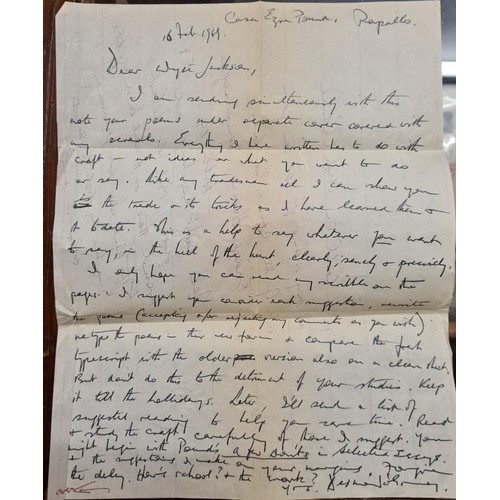 Casa Ezra Pound, Rapallo.
18 Feb. 1969.
Dear Wyse Jackson,
I am sending simultaneously with this
note your poems under separate cover covered with
my scrawls. Everything I have written has to do with
craft - not ideas or what you want to do
or say. Like any tradesman all I can show you
is the trade or its tricks as I have learned them
to date. This is a help to say whatever you want
to say, in the heel of the hunt, clearly, sanely & precisely.
I only hope you can read my scribble on the
pages. I suggest you consider each suggestion, rewrite
the poems (accepting &/or rejecting my comments as you wish)
retype the poems in their new form & compare the fresh
typescript with the older version also on a clean sheet.
But don't do this to the detriment of your studies. Keep
it till the hollidays. Later, I'll send a list of
suggested reading to help you save time. Read
& study the craft carefully of those I suggest. You
might begin with Pound's A few Don'ts in Selected Essays.
the suggestions I make on your margins. Forgive
the delay. How's school? & the work?
Yrs. Desmond O'Grady.
over